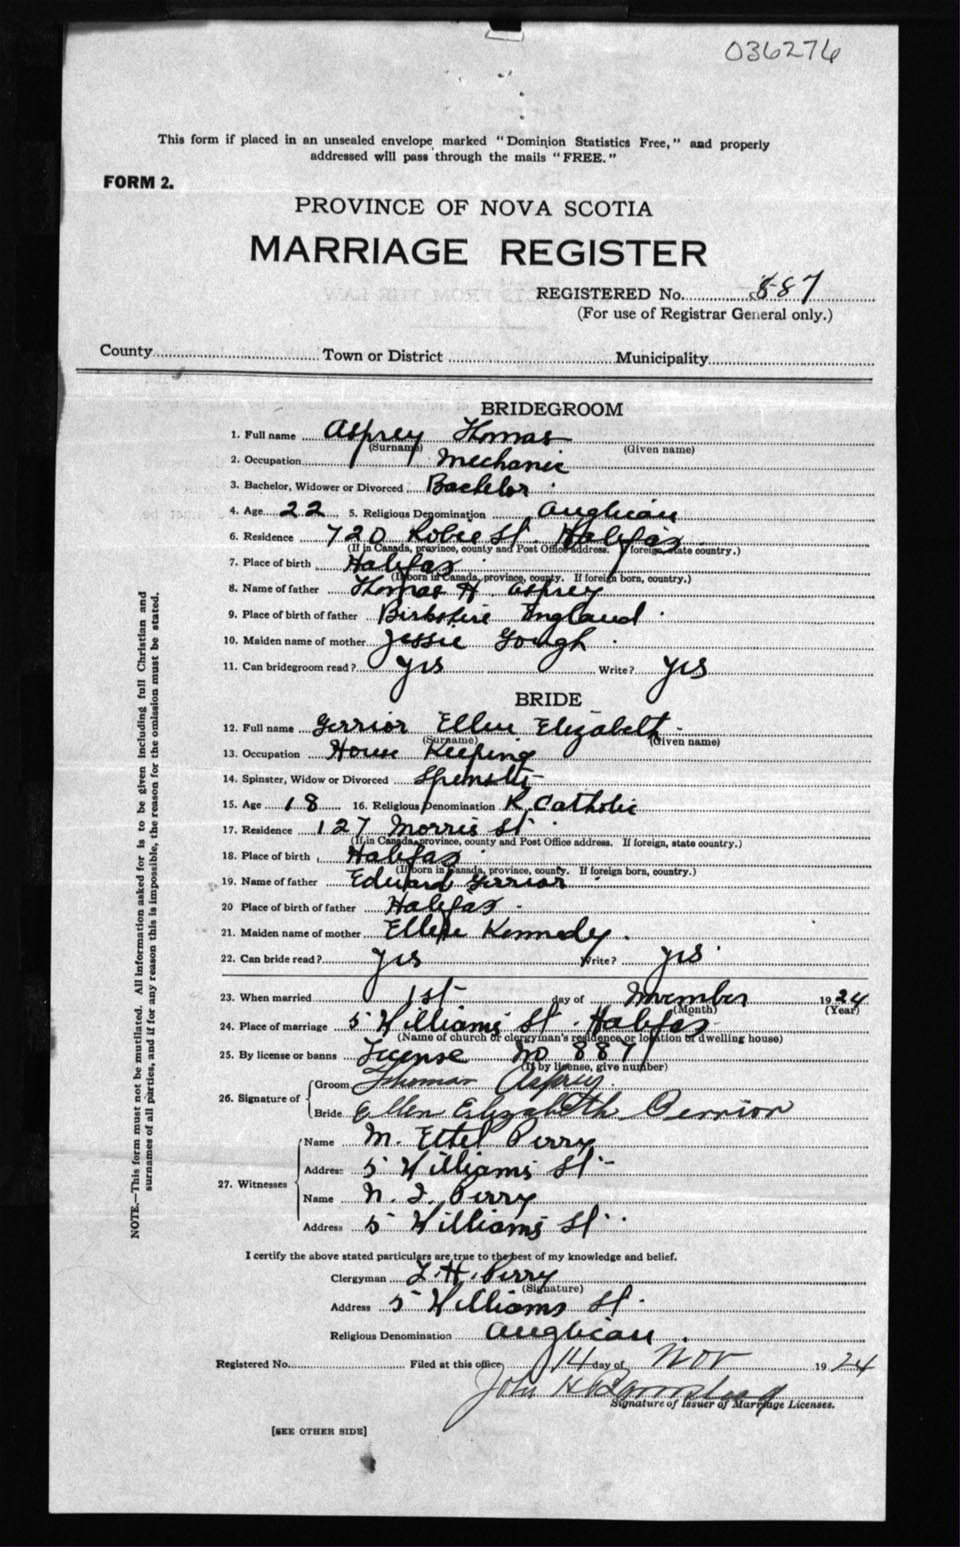 036276
This form if placed in an unsealed envelope marked "Dominion Statistics Free," and properly
addressed will pass through the mails "FREE."
FORM 2.
PROVINCE OF NOVA SCOTIA
MARRIAGE REGISTER
REGISTERED No. 887
(For use of Registrar General only.)
County Town or District Municipality
BRIDEGROOM
1. Full name Asprey Thomas
(Surname) (Given name)
2. Occupation Mechanic
3. Bachelor, Widower or Divorced Bachelor
4. Age 22 5. Religious Denomination Anglican
6. Residence 720 Robie St. Halifax
(If in Canada, province, county and Post Office address. If foreign, state country.)
7. Place of birth Halifax
(If born in Canada, province, county. If foreign born, country.)
8. Name of father Thomas H. Asprey
9. Place of birth of father Birkshire England
10. Maiden name of mother Jessie Gough
11. Can bridegroom read? yes Write? yes
BRIDE
12. Full name Gerrior Ellen Elizabeth
(Surname) (Given name)
13. Occupation House Keeping
14. Spinster, Widow or Divorced Spinster
15. Age 18 16. Religious Denomination R. Catholic
17. Residence 127 Morris St.
(If in Canada, province, county and Post Office address. If foreign, state country.)
18. Place of birth Halifax
(If born in Canada, province, county. If foreign born, country.)
19. Name of father Edward Gerrior
20 Place of birth of father Halifax
21. Maiden name of mother Ellen Kennedy
22. Can bride read? yes Write? yes
23. When married 1st day of November 1924
(Month) (Year)
24. Place of marriage 5 Williams St. Halifax
(Name of church or clergyman's residence or location of dwelling house)
25. By license or banns License No 887
(If by license, give number)
26. Signature of Groom Thomas Asprey
Bride Ellen Elizabeth Gerrior
27. Witnesses Name M. Ethel Perry
Address 5 Williams St.
Name N. I. Perry
Address 5 Williams St.
I certify the above stated particulars are true to the best of my knowledge and belief.
Clergyman L. H. Perry
(Signature)
Address 5 Williams St.
Religious Denomination Anglican
Registered No. Filed at this office 14 day of Nov 1924
John
Signature of Issuer of Marriage Licenses.
[SEE OTHER SIDE]
NOTE.—This form must not be mutilated. All information asked for is to be given including full Christian and
surnames of all parties, and if for any reason this is impossible, the reason for the omission must be stated.